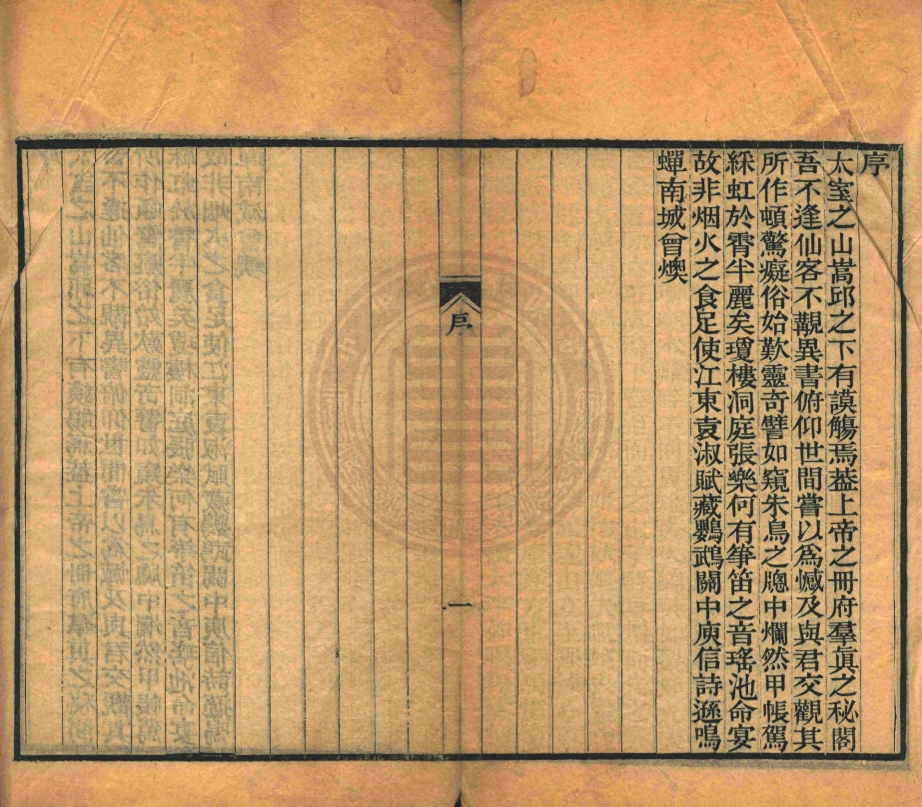 序
太室之山嵩邱之下有謨觴焉葢上帝之冊府羣眞之秘閣
吾不逢仙客不覩異書俯仰世間嘗以爲憾及與君交觀其
所作頓驚癡俗始歎靈奇譬如窺朱鳥之牕中爛然甲帳駕
綵虹於霄半麗矣瓊樓洞庭張樂何有箏笛之音瑤池命宴
故非烟火之食足使江東袁淑賦藏鸚鵡關中庾信詩遜鳴
蟬南城曾燠
序
一